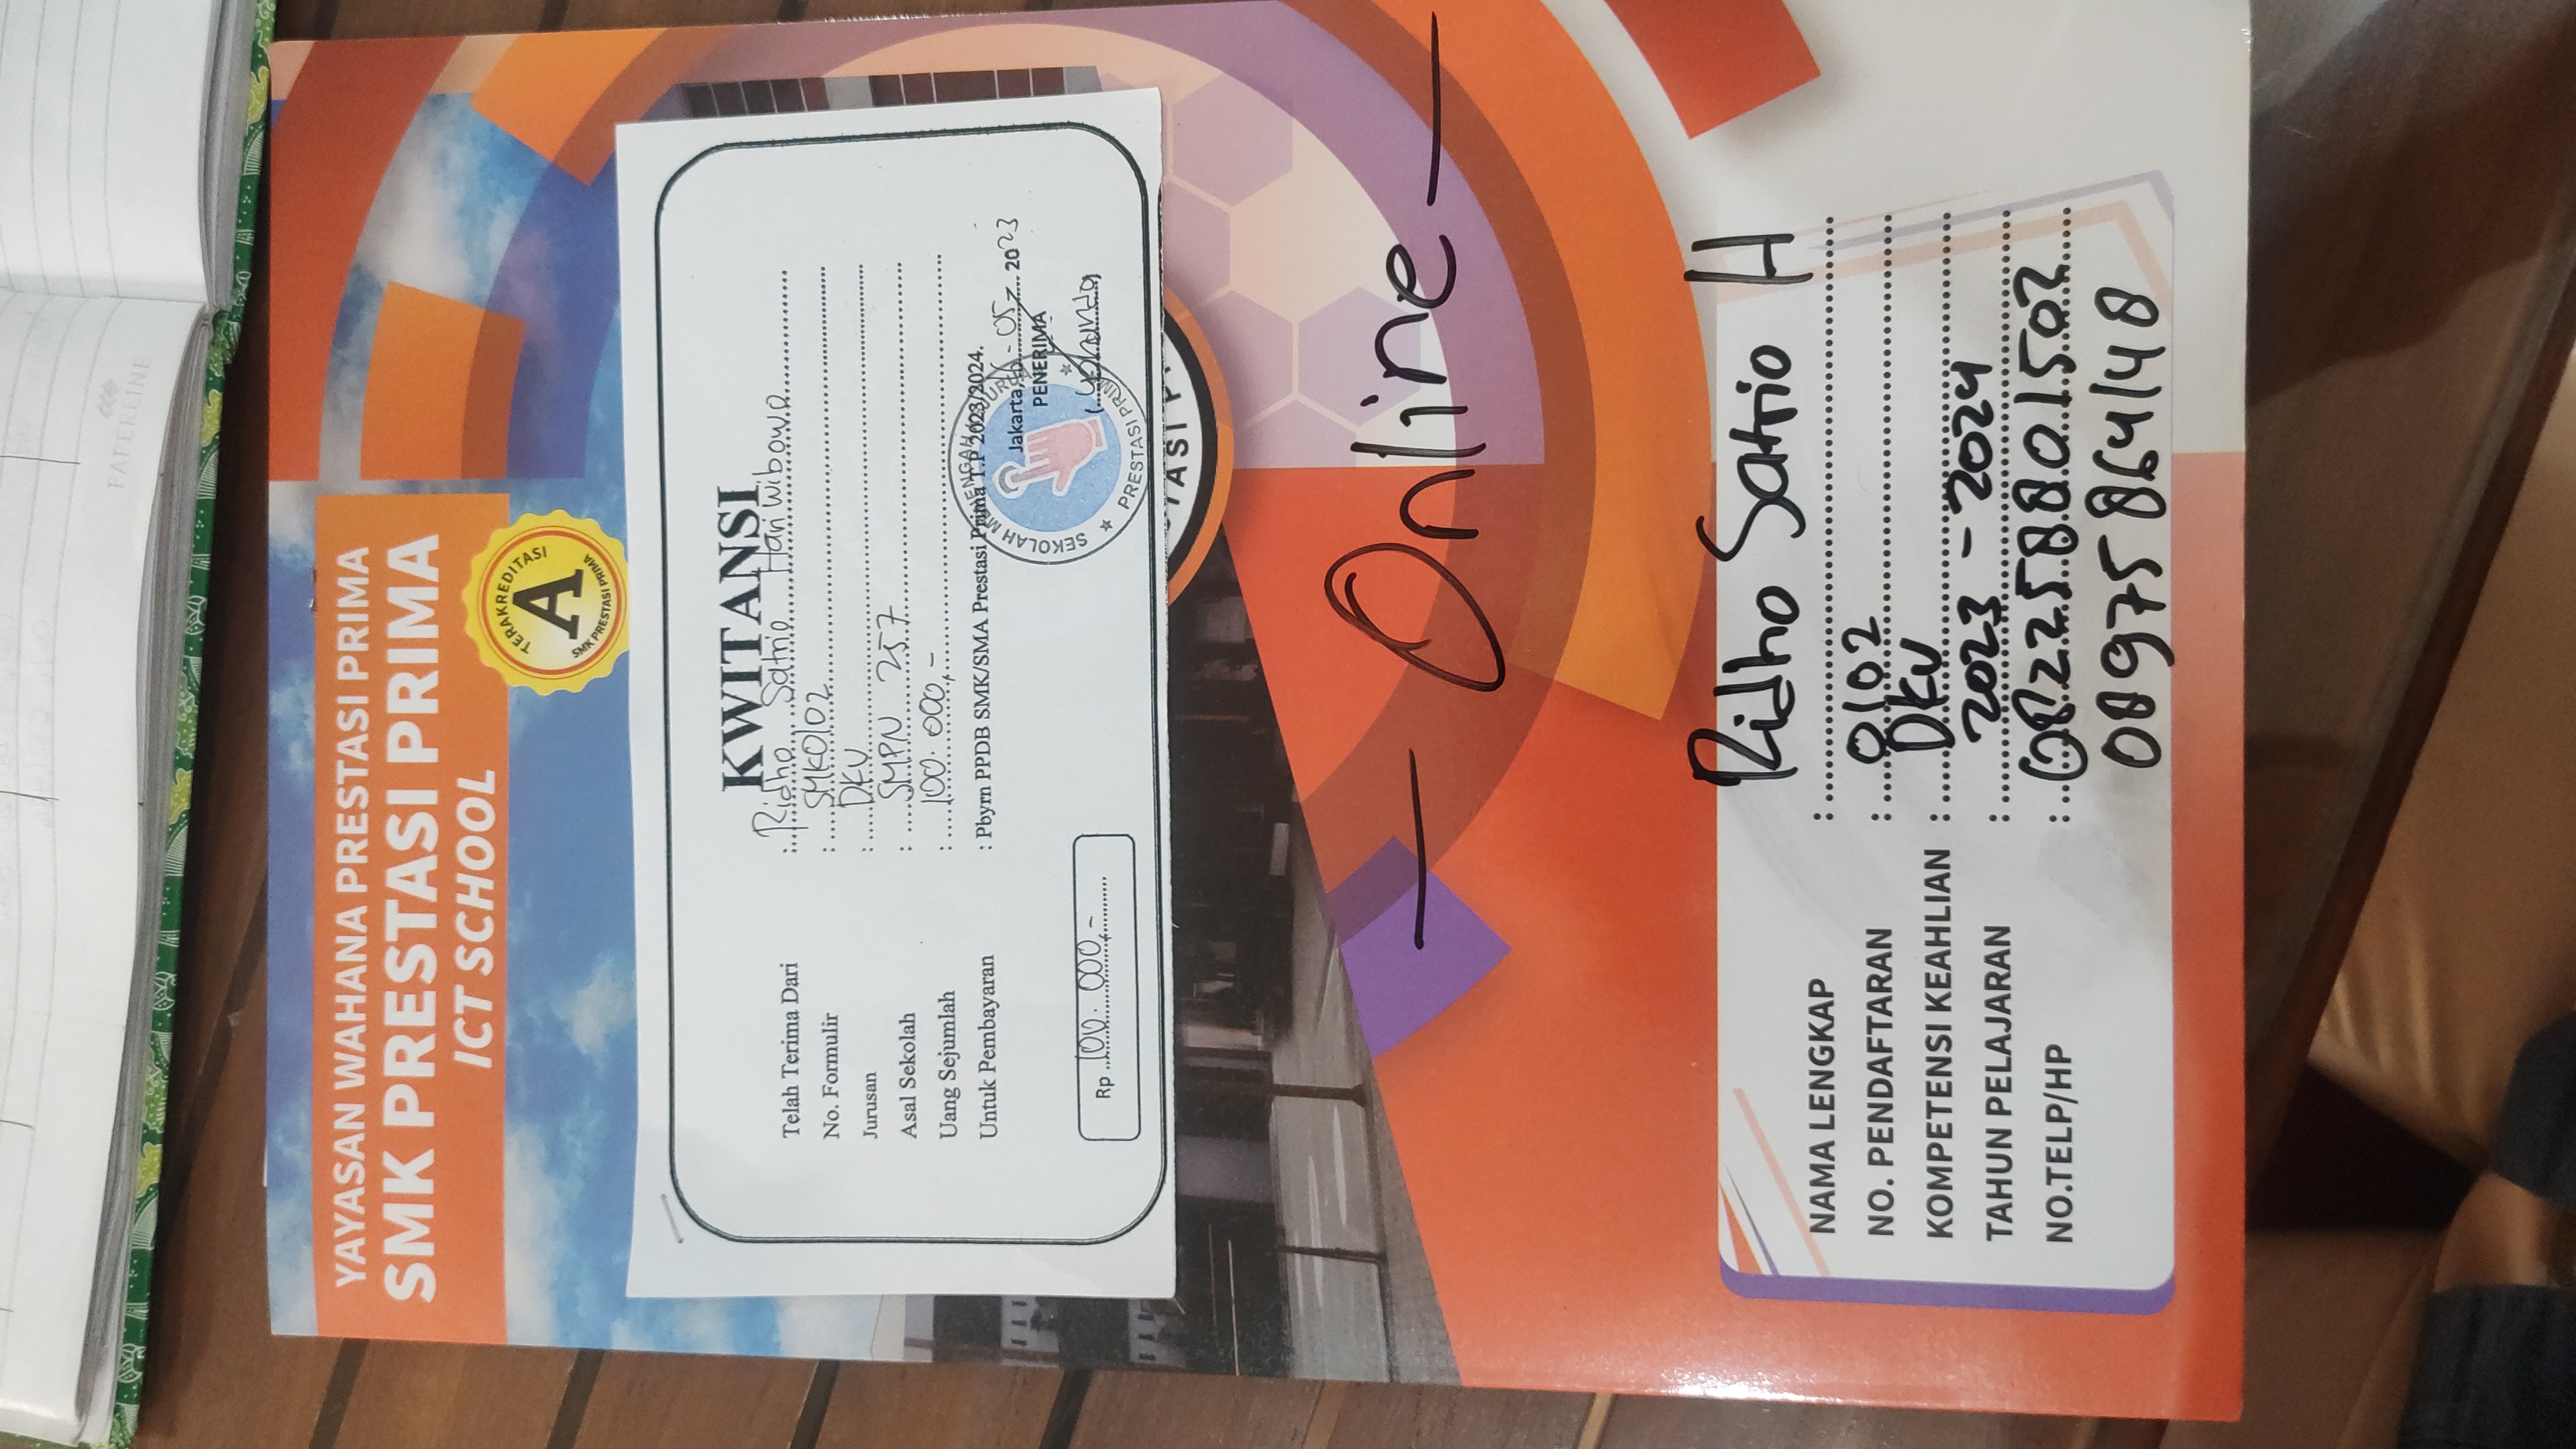 PAPERLINE
YAYASAN WAHANA PRESTASI PRIMA
SMK PRESTASI PRIMA
ICT SCHOOL
TERAKREDITASI
A
SMK PRESTASI PRIMA
KWITANSI
Telah Terima Dari : Ridho Satrio Hariwibowo
No. Formulir : SMK0102
Jurusan : DKV
Asal Sekolah : SMPN 257
Uang Sejumlah : 100.000,-
Untuk Pembayaran : Pbyrn PPDB SMK/SMA Prestasi Prima T.P 2023/2024.
Jakarta, -05- 2023
PENERIMA
Rp 100.000,-
SEKOLAH MENENGAH KEJURUAN
PRESTASI PRIMA
TASI P
- Online -
NAMA LENGKAP : Ridho Satrio H
NO. PENDAFTARAN : 0102
KOMPETENSI KEAHLIAN : DKV
TAHUN PELAJARAN : 2023 - 2024
NO.TELP/HP : 082258801502
08975864148